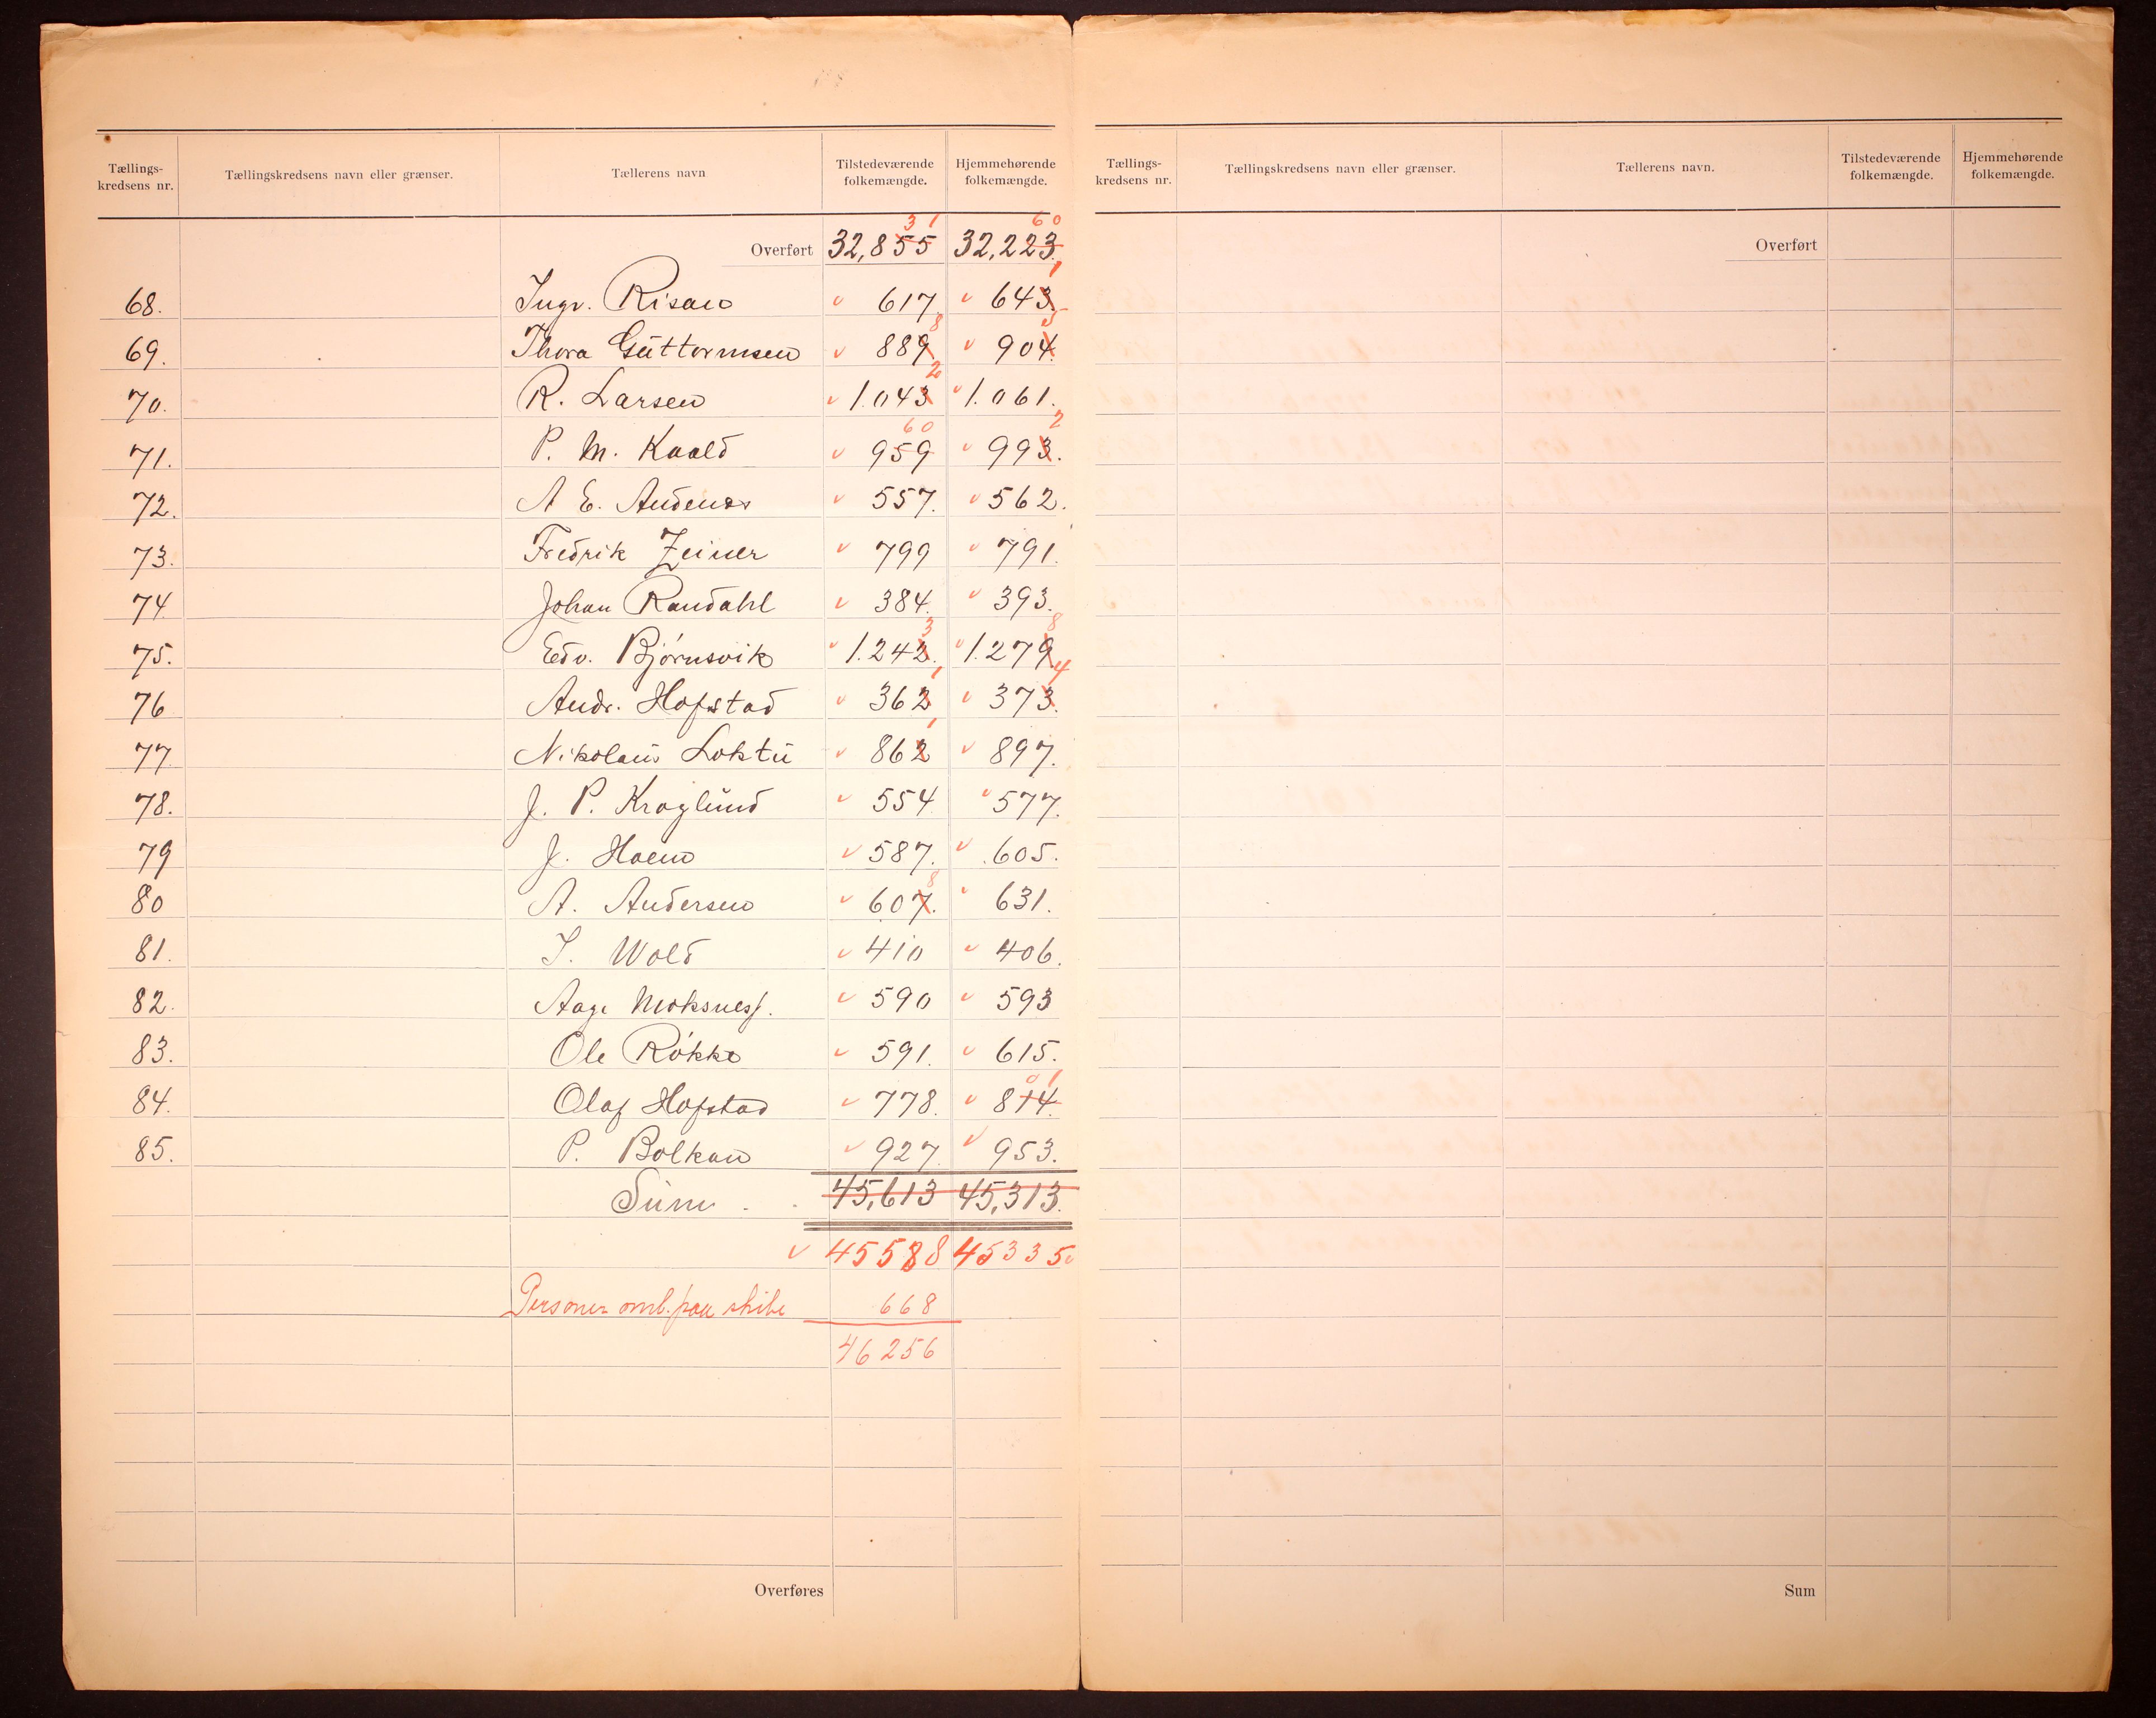 Tællings-kredsens nr. Tællingskredsens navn eller grænser. Tællerens navn Tilstedeværende folkemængde. Hjemmehørende folkemængde.
31 60
Overført 32,855 32,223.
68. Ingv. Risan v 617 v 643. 1
69. Thora Guttormsen v 889 8 v 904. 5
70. R. Larsen v 1.043 2 v 1.061.
71. P. M. Kaald v 959 60 v 993. 2
72. A E. Andenæs v 557. v 562.
73. Fredrik Zeiner v 799 v 791.
74. Johan Randahl v 384. v 393.
75. Edv. Bjørnsvik v 1.242. 3 v 1.279. 8
76 Andr. Hofstad v 362 1 v 373. 4
77. Nikolaus Loktu v 862 1 v 897.
78. J. P. Kroglund v 554 v 577.
79 J. Hoem v 587. v 605.
80 A. Andersen v 607. 8 v 631.
81. I. Wold v 410 v 406.
82. Aage Moksness. v 590 v 593
83. Ole Røkke v 591. v 615.
84. Olaf Hofstad v 778. v 814. 01
85. P. Bolkan v 927. v 953.
Sum . . 45,613 45,313.
v 45588 45335 v
Personer omb. paa skibe 668
46256
Overføres
Tællings-kredsens nr. Tællingskredsens navn eller grænser. Tællerens navn. Tilstedeværende folkemængde. Hjemmehørende folkemængde.
Overført
Sum